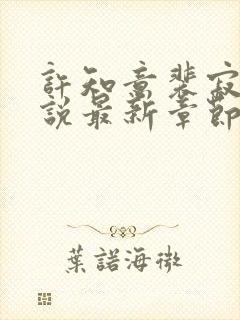 許知意裴寂
說最新章節
葉諾海微